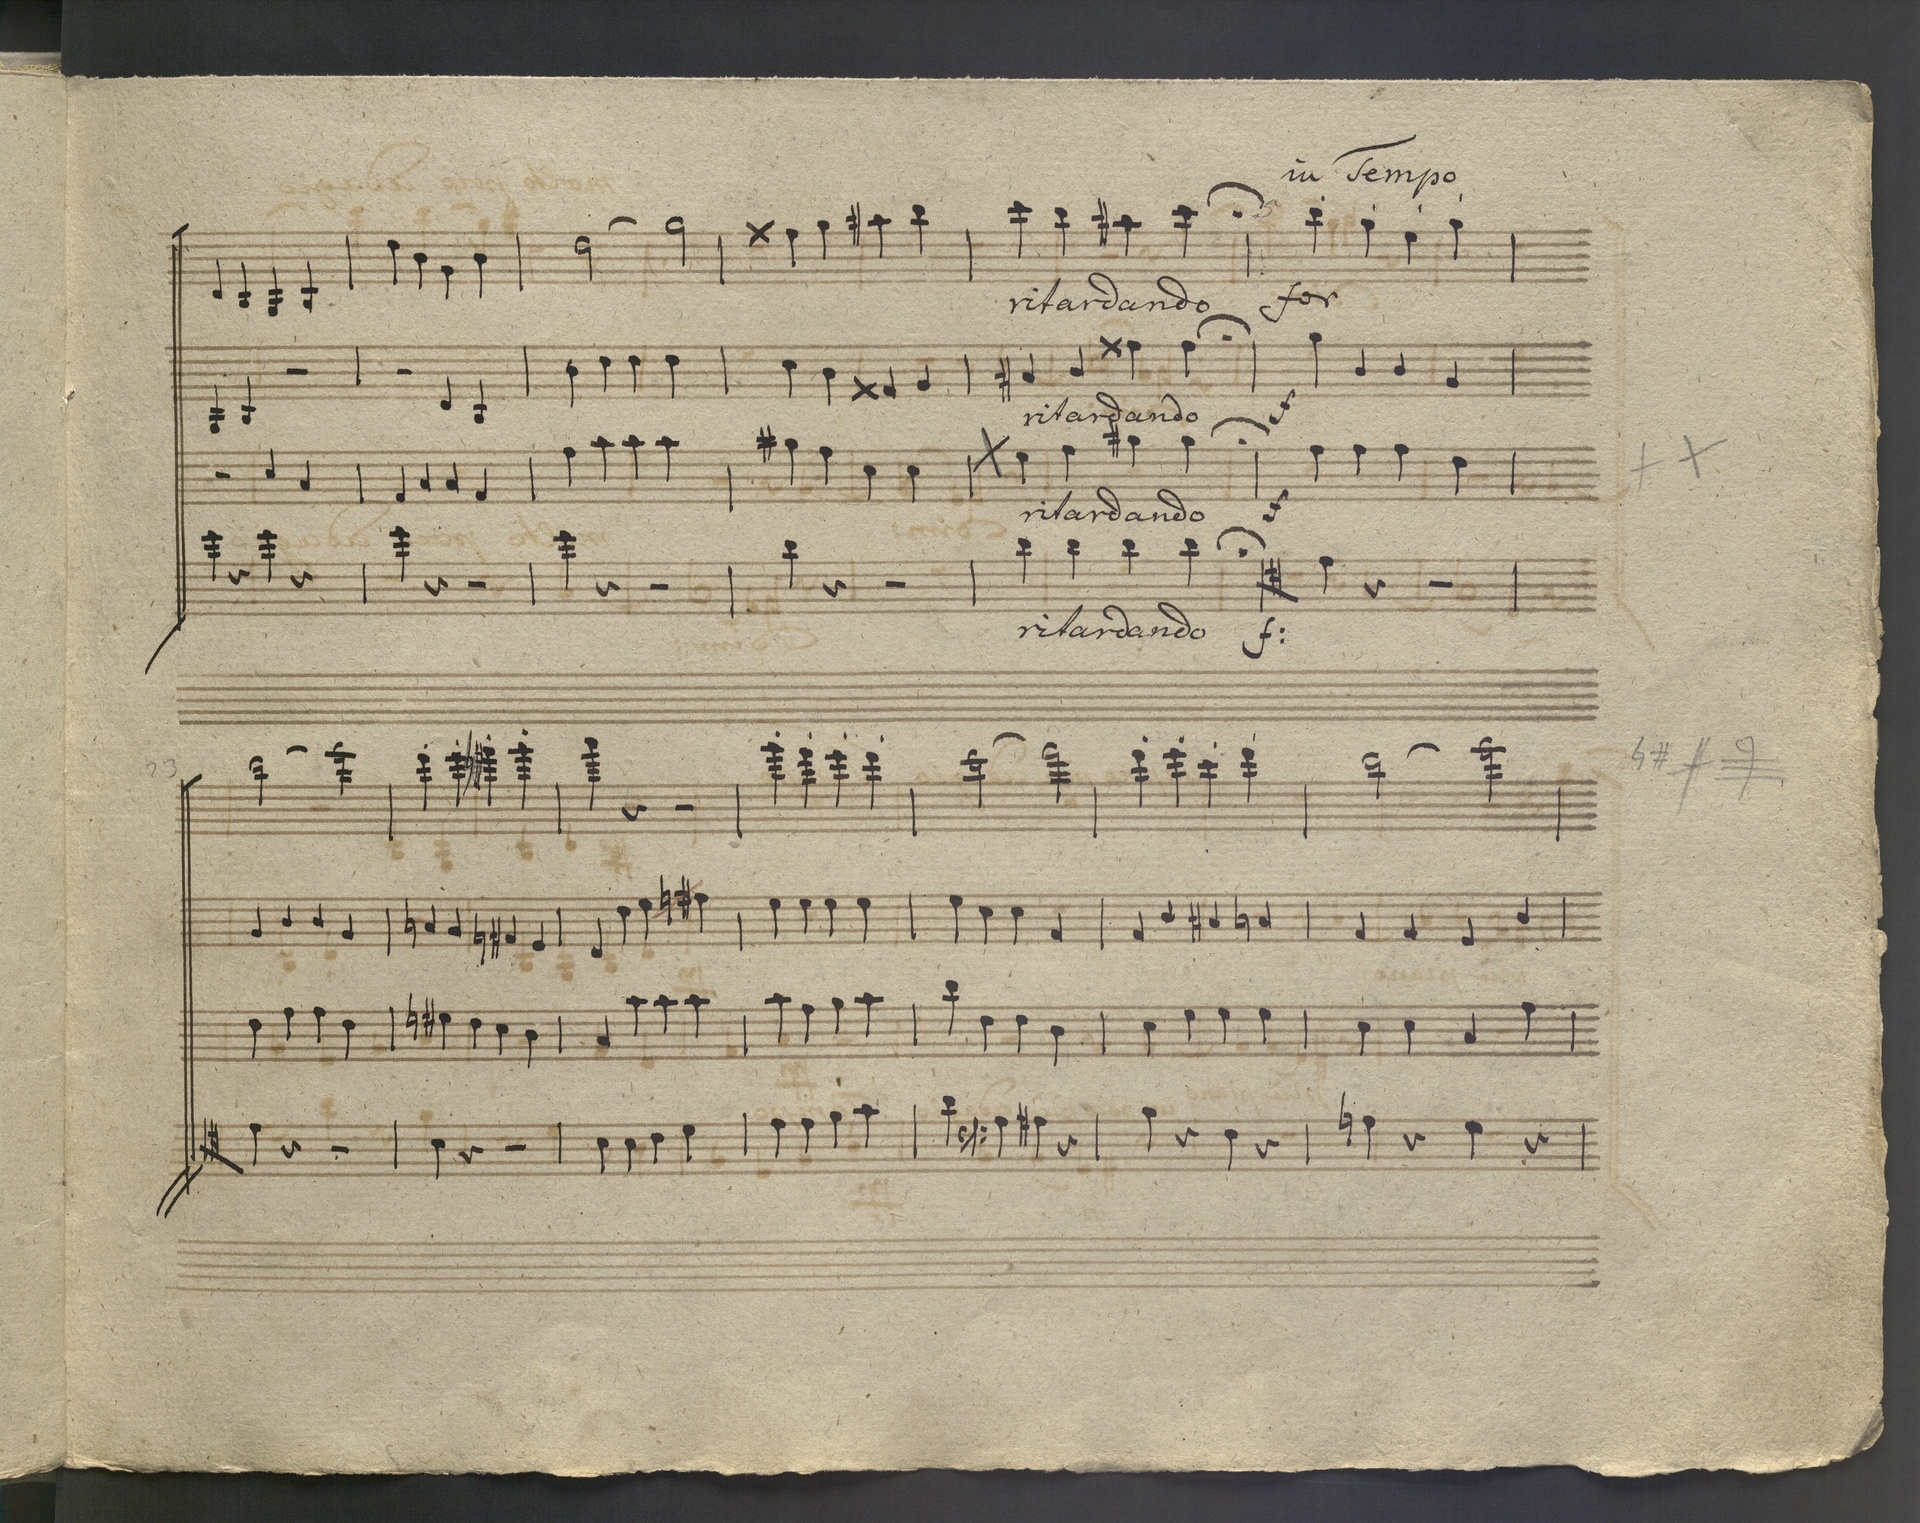 in Tempo
ritardando for
ritardando f
ritardando f
ritardando f:
23